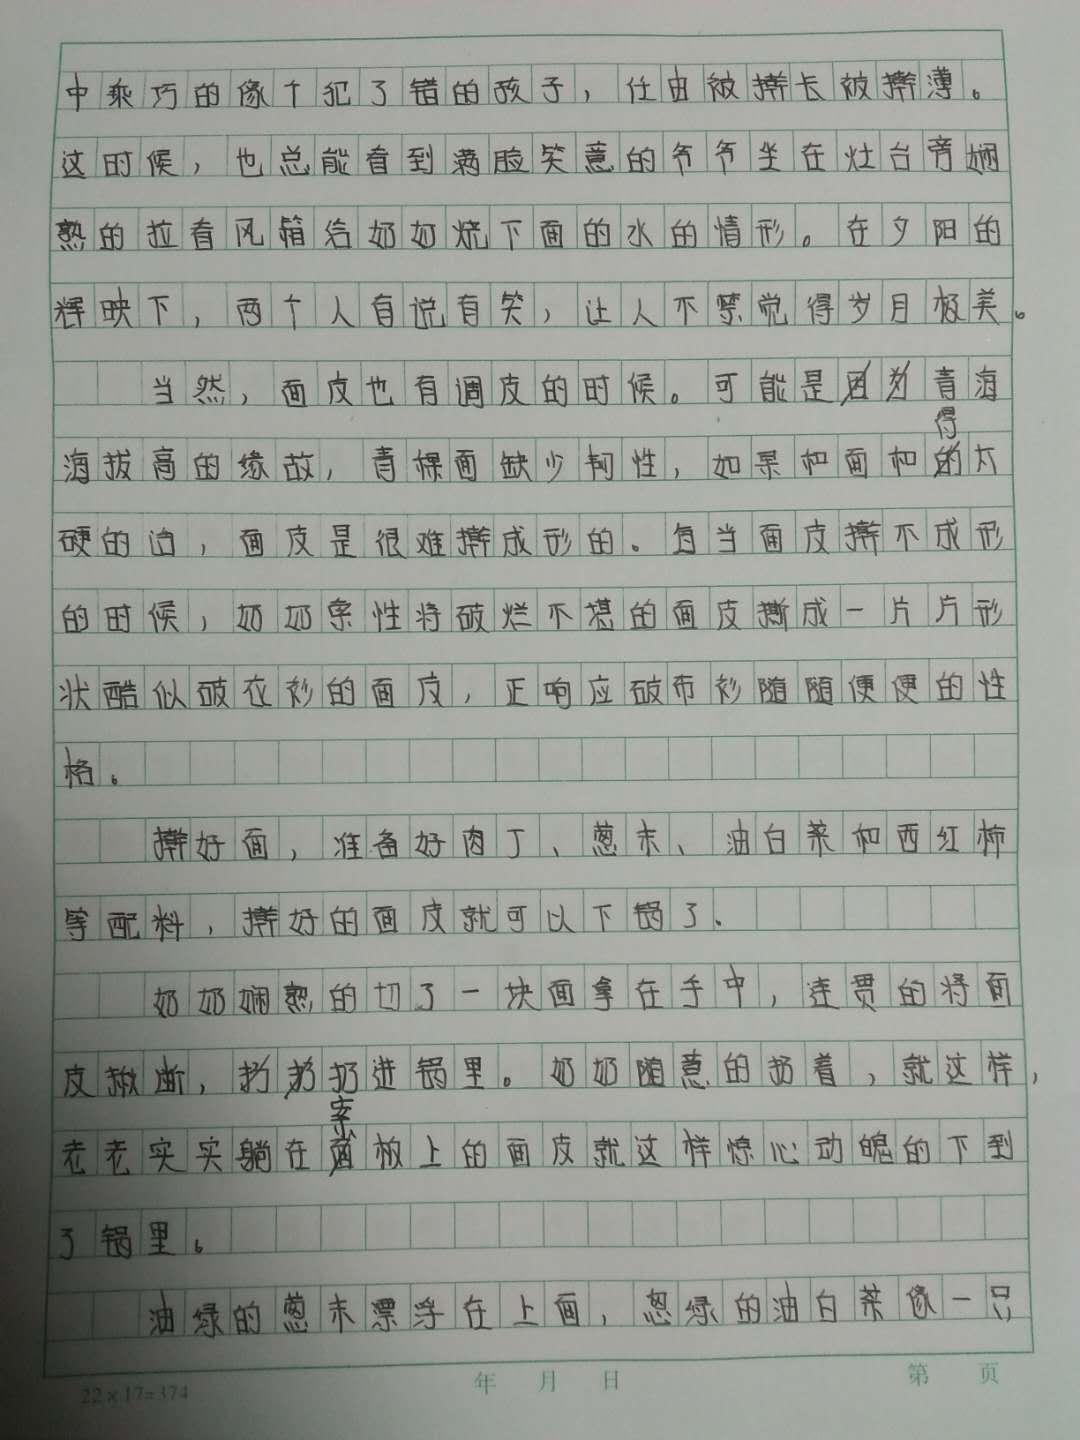 中乖巧的像个犯了错的孩子，任由被擀长被擀薄。
这时候，也总能看到满脸笑意的爷爷坐在灶台旁娴
熟的拉着风箱给奶奶烧下面的水的情形。在夕阳的
辉映下，两个人有说有笑，让人不禁觉得岁月极美。
当然，面皮也有调皮的时候。可能是青海
海拔高的缘故，青稞面缺少韧性，如果和面和得太
硬的话，面皮是很难擀成形的。每当面皮擀不成形
的时候，奶奶索性将破烂不堪的面皮撕成一片片形
状酷似破衣衫的面皮，正响应破布衫随随便便的性
格。
擀好面，准备好肉丁、葱末、油白菜和西红柿
等配料，擀好的面皮就可以下锅了。
奶奶娴熟的切了一块面拿在手中，连贯的将面
皮揪断，扔进锅里。奶奶随意的扔着，就这样，
老老实实躺在案板上的面皮就这样惊心动魄的下到
了锅里。
油绿的葱末漂浮在上面，葱绿的油白菜像一只
22×17=374 年 月 日 第 页